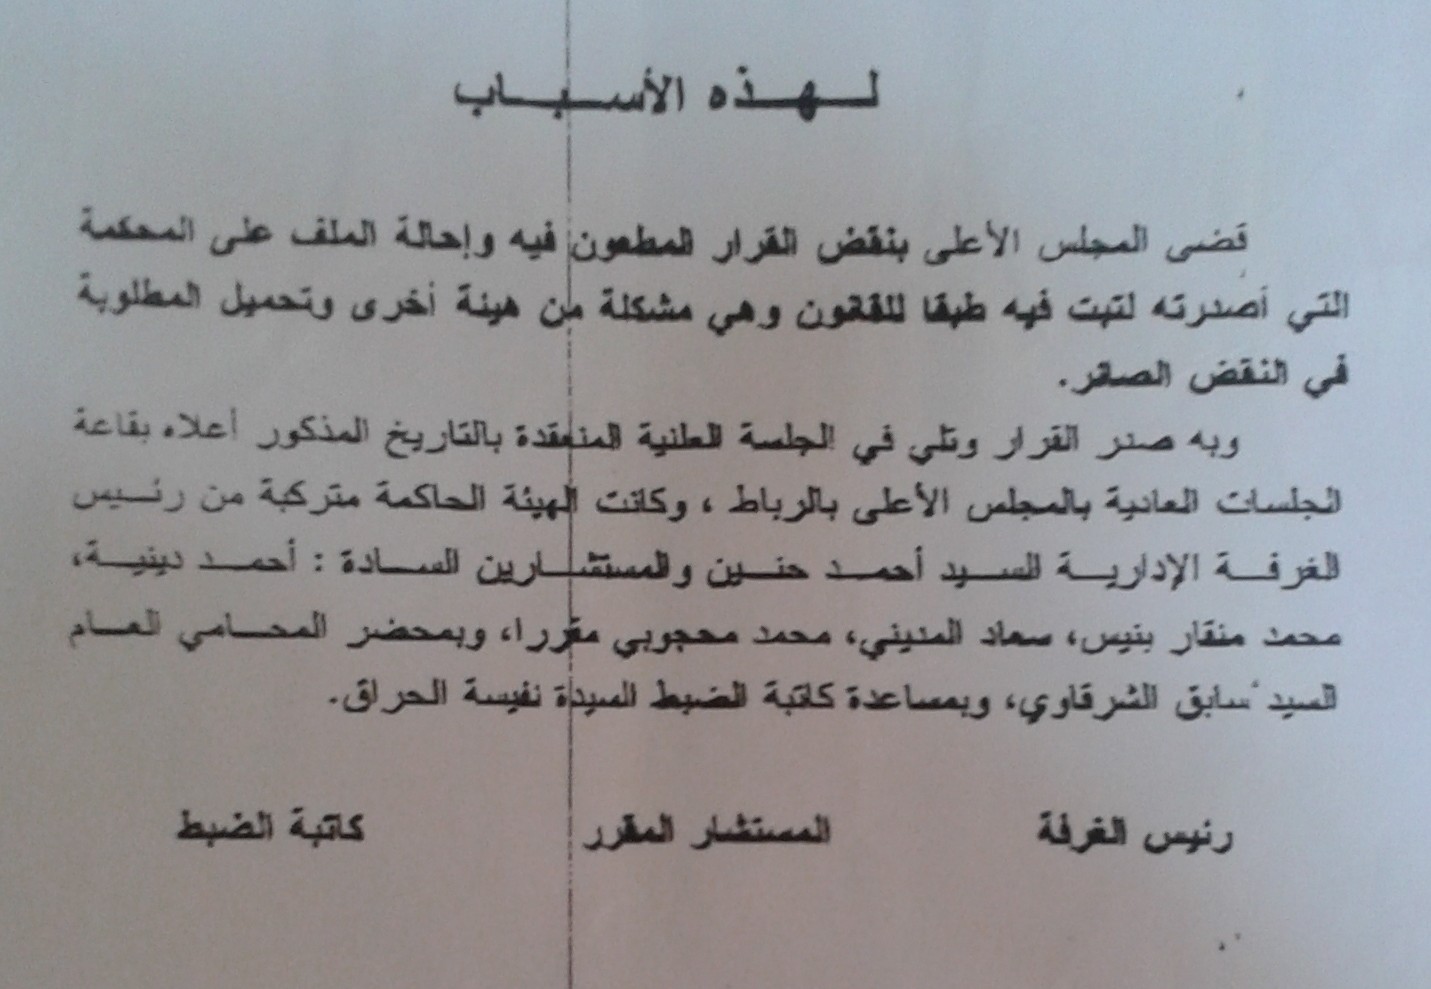 لهذه الأسباب
قضى المجلس الأعلى بنقض القرار المطعون فيه وإحالة الملف على المحكمة
التي أصدرته لتبت فيه طبقا للقانون وهي مشكلة من هيئة أخرى وتحميل المطلوبة
في النقض الصائر.
وبه صدر القرار وتلي في الجلسة العلنية المنعقدة بالتاريخ المذكور أعلاه بقاعة
الجلسات العادية بالمجلس الأعلى بالرباط ، وكانت الهيئة الحاكمة متركبة من رئيس
الغرفة الإدارية السيد أحمد حنين والمستشارين السادة : أحمد دينية،
محمد منقار بنيس، سعاد المديني، محمد محجوبي مقررا، وبمحضر المحامي العام
السيد سابق الشرقاوي، وبمساعدة كاتبة الضبط السيدة نفيسة الحراق.
رئيس الغرفة المستشار المقرر كاتبة الضبط